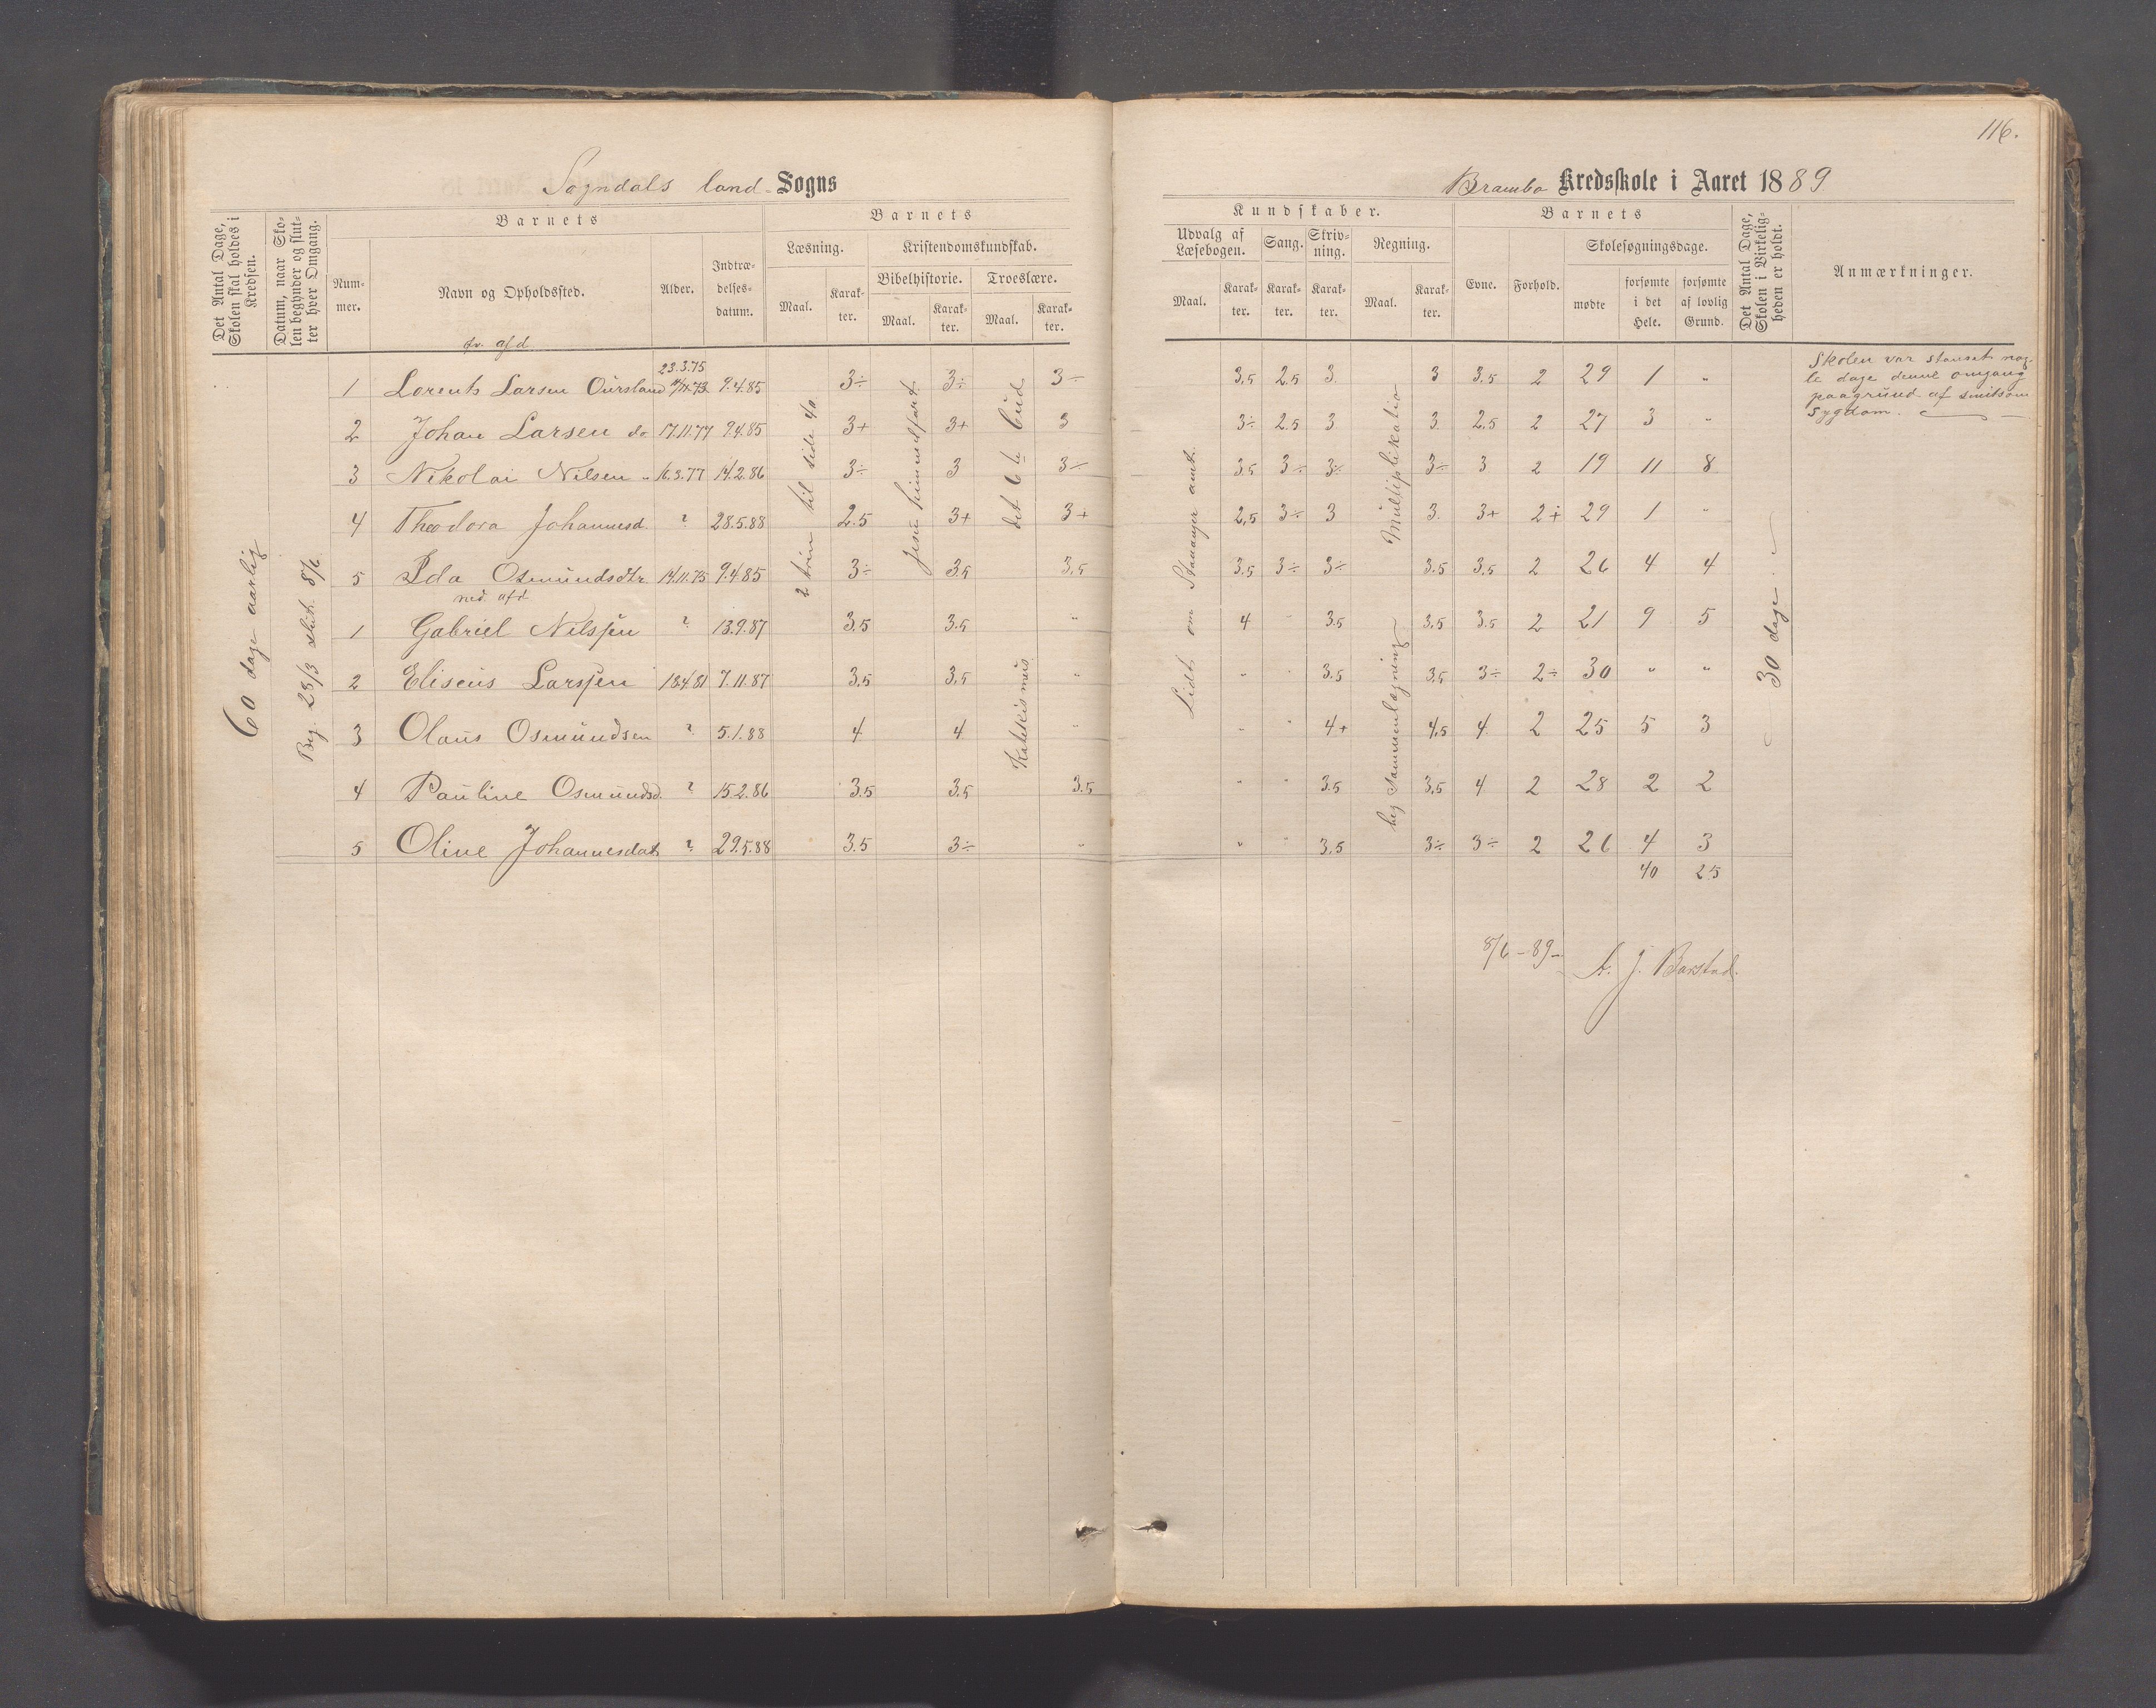 116.
Sogndals land Sogns
Brambo Kredsskole i Aaret 1889
Det Antal Dage, Skolen skal holdes i Kredsen.
Datum, naar Skolen begynder og slutter hver Omgang.
Barnets
Nummer.
Navn og Opholdssted.
Alder.
Indtrædelsesdatum.
Barnets
Læsning.
Maal.
Karakter.
Kristendomskundskab.
Bibelhistorie.
Maal.
Karakter.
Troeslære.
Maal.
Karakter.
Kundskaber.
Udvalg af Læsebogen.
Maal.
Karakter.
Sang.
Karakter.
Skrivning.
Karakter.
Regning.
Maal.
Karakter.
Barnets
Evne.
Forhold.
Skolesøgningsdage.
mødte
forsømte i det Hele.
forsømte af lovlig Grund.
Det Antal Dage, Skolen i Virkeligheden er holdt.
Anmærkninger.
60 dage aarlig
Beg. 23/3 slut. 8/6
2 trin til side 40
Jesu himmelfart
det 6te bud
Katekismus
Lidt om Stavanger amt.
Multiplikation
beg sammenlægning
30 dage
øv. afd
23.3.75
1 Lorents Larsen Oursland 9.4.85 3÷ 3÷ 3÷ 3,5 2.5 3. 3 3.5 2 29 1 "
2 Johan Larsen do 17.11.77 9.4.85 3+ 3+ 3 3÷ 2.5 3 3. 2.5 2 27 3 "
3 Nikolai Nilsen " 16.3.77 14.2.86 3÷ 3 3÷ 3.5 3÷ 3÷ 3÷ 3 2 19 11 8
4 Theodora Johannesd. ? 28.5.88 2.5 3+ 3+ 2,5 3÷ 3 3. 3+ 2+ 29 1 "
5 Ida Osmundsdtr 14.11.75 9.4.85 3÷ 3.5 3,5 3.5 3÷ 3÷ 3.5 3.5 2 26 4 4
ned. afd
1 Gabriel Nilssen ? 13.9.87 3.5 3.5 " 4 " 3.5 3.5 3.5 2 21 9 5
2 Eliseus Larssen 18.4.81 7.11.87 3.5 3,5 " " " 3.5 3.5 3÷ 2÷ 30 " "
3 Olaus Osmundsen ? 5.1.88 4 4 " " " 4+ 4,5 4 2 25 5 3
4 Pauline Osmundsd. ? 15.2.86 3.5 3.5 3.5 " " 3.5 3,5 4 2 28 2 2
5 Oline Johannesdat. ? 29.5.88 3.5 3÷ " " " 3,5 3÷ 3÷ 2 26 4 3
40 25
Skolen var stanset nog-
le dage denne omgang
paagrund af smitsom
sygdom.
8/6 -89-
A. J. Barstad.